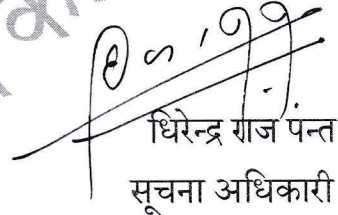 धिरेन्द्र राज पन्त
सूचना अधिकारी